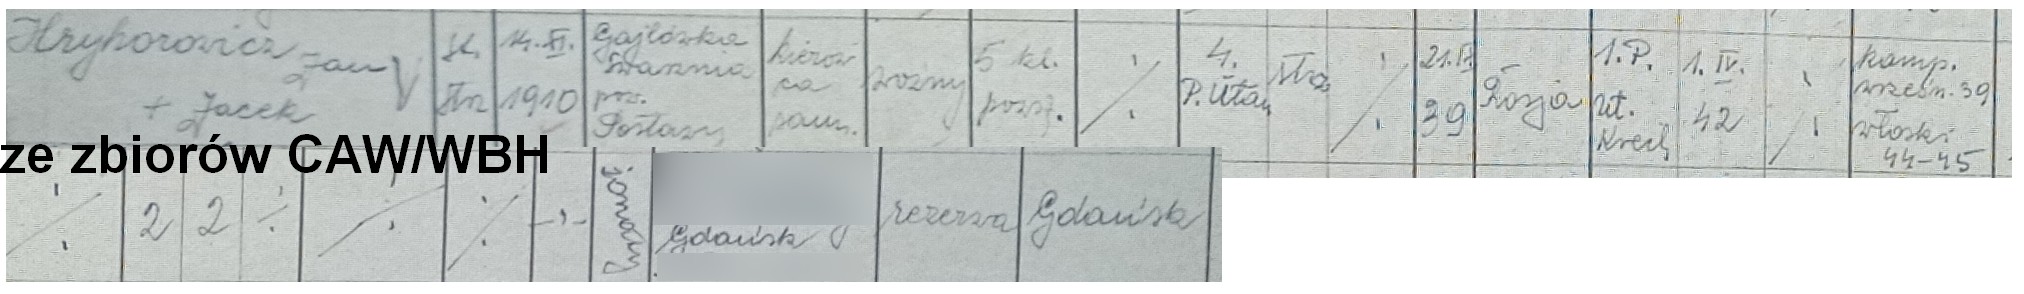 Hryhorowicz Jan
+ Jacek
st. 
uł.
14.XI.
1910
Gajlówka
pow.
Postawy
kierow
ca
sam.
woźny
5 kl.
powsz.
4.
P. Ułan
21.IX
39
Rosja
1. P.
Uł.
Krech
1. IV.
42
kamp.
wrześn. 39
włoski
44-45
ze zbiorów CAW/WBH
2
2
żonaty
Gdańsk
rezerwa
Gdańsk